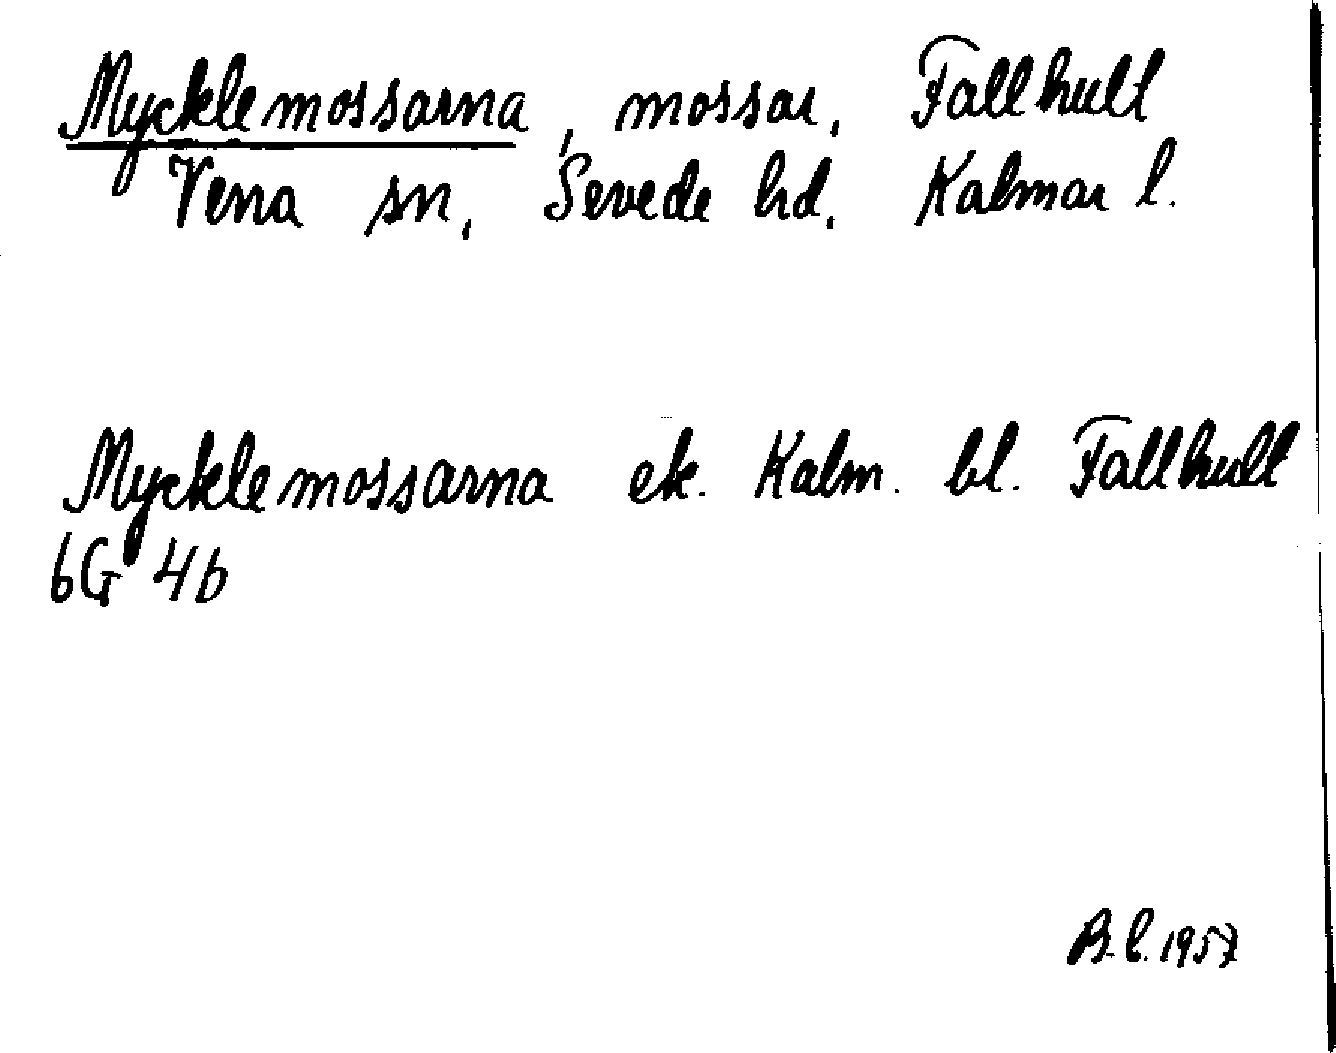 Mycklemossarna, mossar, Fallhult
Vena sn, Sevede hd, Kalmar l.
Mycklemossarna ek. Kalm. bl. Fallhult
6G 4b
B.L. 1957